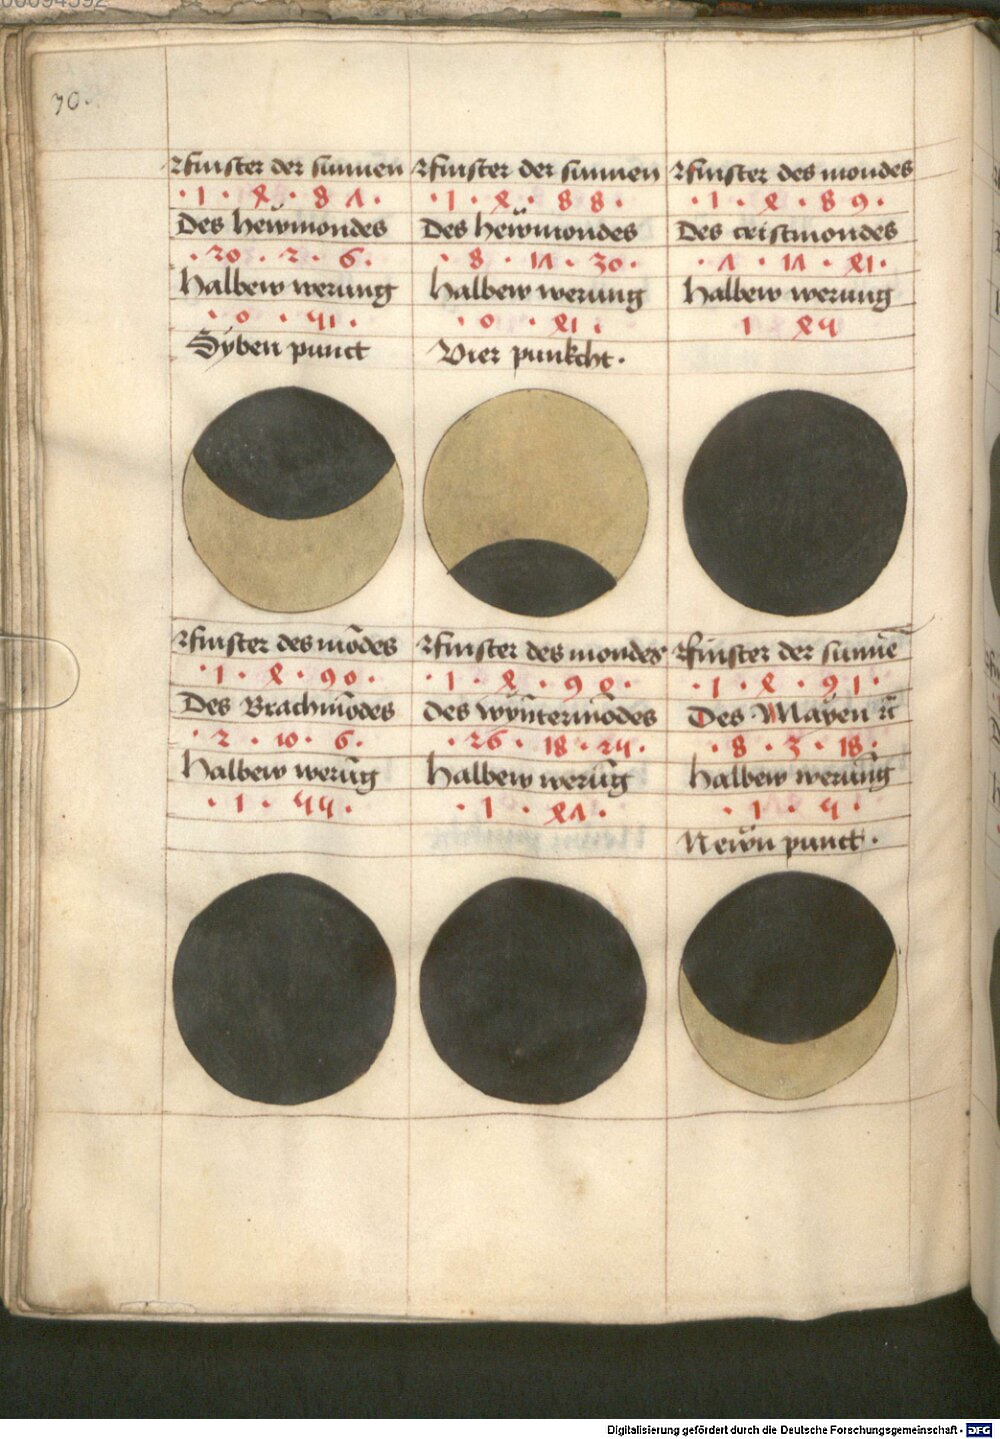 70.
Vinster der sunnen
·1·4·8 7·
Des hewmondes
·20·2·6·
halbew werung
·0·51·
Syben punct
Vinster der sunnen
·1·4·8 8·
Des hewmondes
·8·17·30·
halbew werung
·0·41·
Vier punkcht·
Vinster des mondes
·1·4·8 9·
Des cristmondes
·7·17·41·
halbew werung
1 45
Vinster des mōdes
·1·4·90·
Des Brachmōdes
·2·10·6·
halbew werūg
·1·55·
Vinster des mondes
·1·4·90·
des wyntermōdes
·26·18·25·
halbew werūg
·1·47·
Vinster der sunnē
·1·4·91·
Des Mayen rc̄
·8·3·18·
halbew werung
·1·5·
Newn punct·
Digitalisierung gefördert durch die Deutsche Forschungsgemeinschaft - DFG